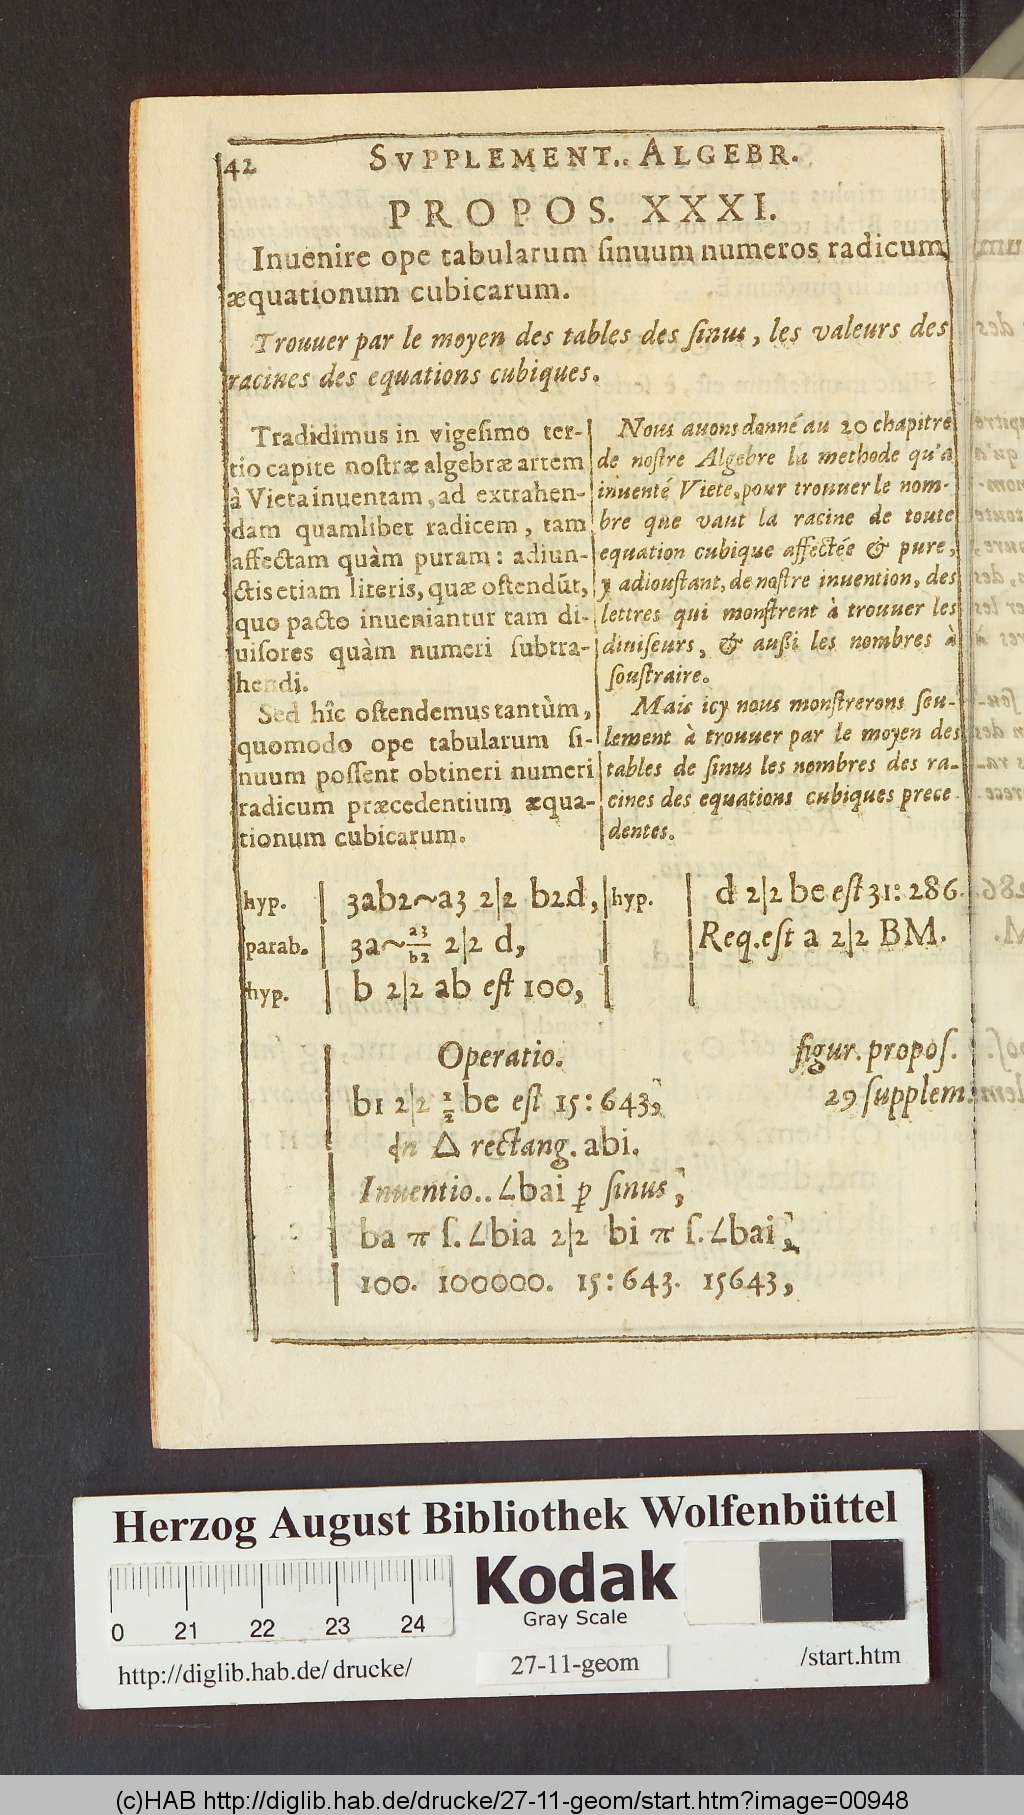 42 SVPPLEMENT.. ALGEBR.
PROPOS. XXXI.
Inuenire ope tabularum ſinuum numeros radicum
æquationum cubicarum.
Trouuer par le moyen des tables des ſinus, les valeurs des
racines des equations cubiques.
Tradidimus in vigeſimo ter-
tio capite noſtræ algebræ artem
à Vieta inuentam, ad extrahen-
dam quamlibet radicem, tam
affectam quàm puram: adiun-
ctis etiam literis, quæ oſtendũt,
quo pacto inueniantur tam di-
uiſores quàm numeri ſubtra-
hendi.
Sed hîc oſtendemus tantùm,
quomodo ope tabularum ſi-
nuum poſſent obtineri numeri
radicum præcedentium æqua-
tionum cubicarum.
Nous auons donné au 20 chapitre
de noſtre Algebre la methode qu'a
inuenté Viete, pour trouuer le nom-
bre que vaut la racine de toute
equation cubique affectée & pure,
y adiouſtant, de noſtre inuention, des
lettres qui monſtrent à trouuer les
diuiſeurs, & auſſi les nombres à
ſouſtraire.
Mais icy nous monſtrerons ſeu-
lement à trouuer par le moyen des
tables de ſinus les nombres des ra-
cines des equations cubiques prece
dentes.
hyp. | 3ab2~a3 2|2 b2d, | hyp. | d 2|2 be eſt 31: 286.
parab. | 3a~a3/b2 2|2 d, | Req. eſt a 2|2 BM.
hyp. | b 2|2 ab eſt 100, |
Operatio. figur. propoſ.
bi 2|2 ½ be eſt 15: 643, 29 ſupplem.
in △ rectang. abi.
Inuentio.. ∠bai p ſinus,
ba π ſ. ∠bia 2|2 bi π ſ. ∠bai,
100. 100000. 15: 643. 15643,
Herzog August Bibliothek Wolfenbüttel
Kodak
Gray Scale
0 21 22 23 24
http://diglib.hab.de/drucke/ 27-11-geom /start.htm
(c)HAB http://diglib.hab.de/drucke/27-11-geom/start.htm?image=00948